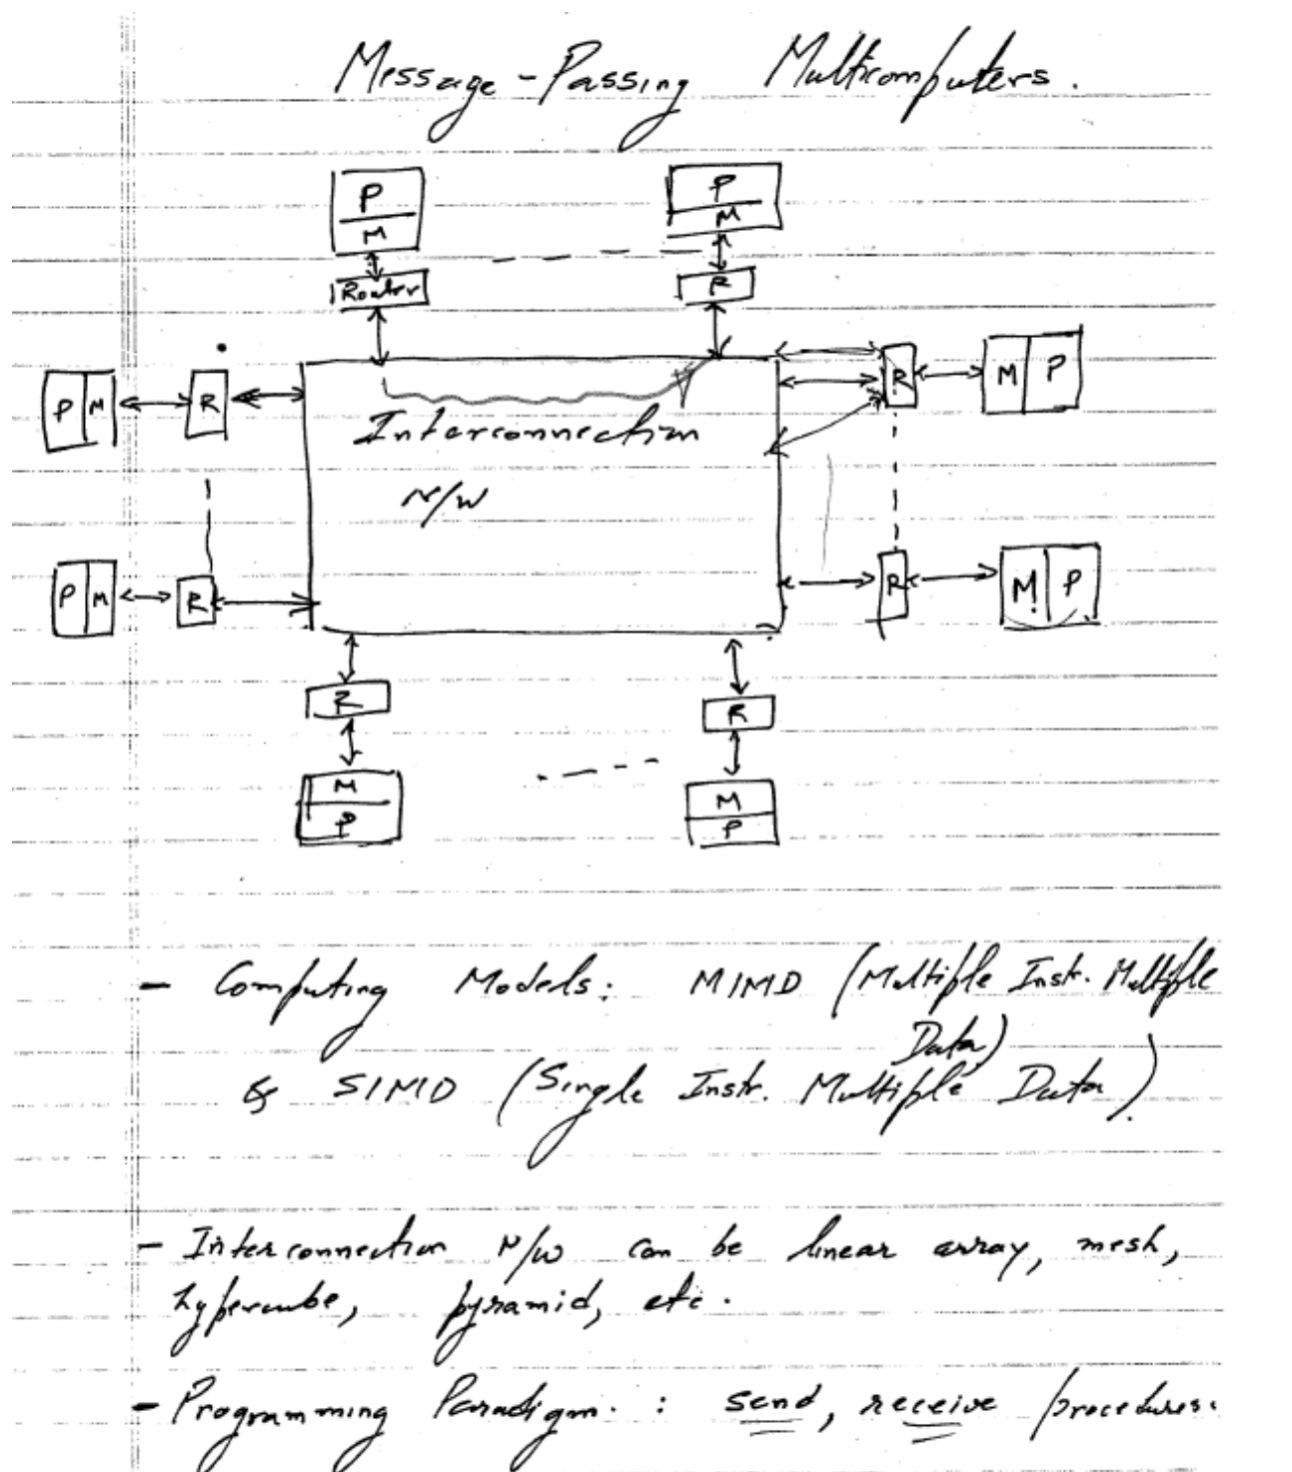 Message-Passing Multicomputers.
P P
M M
Router R
P M R R M P
Interconnection
N/W
P M R R M P
R R
M M
P P
- Computing Models: MIMD (Multiple Instr. Multiple
Data)
& SIMD (Single Instr. Multiple Data).
- Interconnection N/W can be linear array, mesh,
hypercube, pyramid, etc.
- Programming Paradigm. : send, receive procedures.